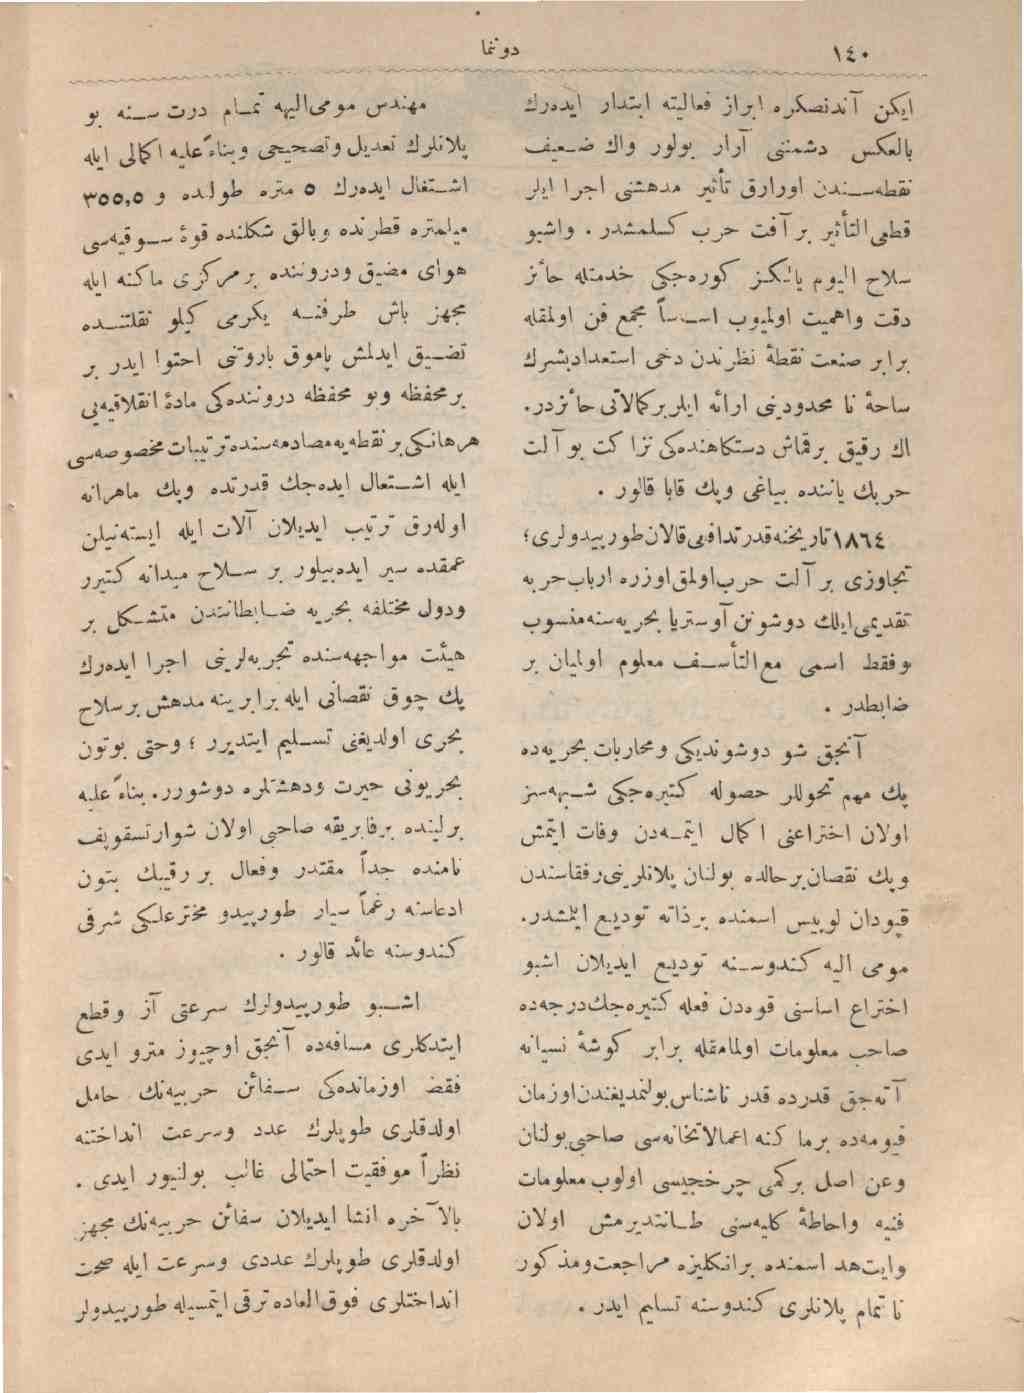 ١٤٠
دوننما
ايكن آندنصكره ابراز فعاليته ابتدار ايده‌رك
بالعكس دشمننى آرار بولور واك ضعيف
نقطه‌سندن اورارق تأثير مدهشنى اجرا ايلر
قطعى‌التأثير بر آفت حرب كسلمشدر . واشبو
سلاح اليوم يالكز كوره‌جكى خدمتله حائز
دقت واهميت اولميوب اساساً مجمع فن اولمقله
برابر صنعت نقطهٔ نظرندن دخى استعداد بشرك
ساحهٔ نا محدودينى ارائه ايلر بر كمالاتى حائزدر.
اك رقيق بر قماش دستكاهنده‌كى نزاكت بو آلت
حربك ياننده بياغى وپك قابا قالور .
١٨٦٤ تاريخنه قدر تدافعى قالان طورپيدولرى؛
تجاوزى بر آلت حرب اولمق اوزره ارباب حربه
تقديمى ايلك دوشونن آوستريا بحريه‌سنه منسوب
وفقط اسمى مع‌التأسف معلوم اوليان بر
ضابطدر .
آنجق شو دوشونديكى ومحاربات بحريه‌ده
پك مهم تحوللر حصوله كتيره‌جكى شبهه‌سز
اولان اختراعنى اكمال ايتمه‌دن وفات ايتمش
وپك نقصان بر حالده بولنان پلانلرينى رفقاسندن
قپودان لوپيس اسمنده بر ذاته توديع ايتمشدر.
مومى اليه كندوسنه توديع ايديلان اشبو
اختراع اساسنى قوه‌دن فعله كتيره‌جك درجه‌ده
صاحب معلومات اولمامقله برابر كوشهٔ نسيانه
آته‌جق قدرده قدر ناشناس بولنمديغندن اوزمان
فيومه‌ده بر ماكنه اعمالاتخانه‌سى صاحبى بولنان
وعن اصل بر كمى چرخجيسى اولوب معلومات
فنيه واحاطهٔ كليه‌سنى طانتديرمش اولان
وايت‌هد اسمنده بر انكليزه مراجعت ومذكور
ناتمام پلانلرى كندوسنه تسليم ايدر .
مهندس مومى‌اليه تمام درت سنه بو
پلانلرك تعديل وتصحيحى وبناءً عليه اكمالى ايله
اشتغال ايده‌رك ٥ متره طولده و ٣٥٥,٥
ميلمتره قطرنده وبالق شكلنده قوهٔ سوقيه‌سى
هواى مضيق ودروننده بر مركزى ماكنه ايله
مجهز باش طرفنه يكرمى كيلو ثقلتنده
تضييق ايدلمش پاموق باروتنى احتوا ايدر بر
بر محفظه وبو محفظه دروننده‌كى مادهٔ انفلاقيه‌يى
هرهانكى بر نقطه‌يه مصادمه‌سنده ترتيبات مخصوصه‌سى
ايله اشتعال ايده‌جك قدرتده وپك ماهرانه
اوله‌رق ترتيب ايديلان آلات ايله ايسته‌نيلن
عمقده سير ايده‌بيلور بر سلاح ميدانه كتيرر
ودول مختلفه بحريه ضابطانندن متشكل بر
هيئت مواجهه‌سنده تجربه‌لرينى اجرا ايده‌رك
پك چوق نقصانى ايله برابر ينه مدهش بر سلاح
بحرى اولديغنى تسليم ايتديرر ؛ وحتى بوتون
بحريونى حيرت ودهشتلره دوشورر. بناءً عليه
برلينده بر فابريقه صاحبى اولان شوارتسقوپف
نامنده جداً مقتدر وفعال بر رقيبك بتون
ادعاسنه رغماً سيار طورپيدو مخترعلكى شرفى
كندوسنه عائد قالور .
اشبو طورپيدولرك سرعتى آز وقطع
ايتدكلرى مسافه‌ده آنجق اوچيوز مترو ايدى
فقط اوزمانده‌كى سفائن حربيه‌نك حامل
اولدقلرى طوپلرك عدد وسرعت انداختنه
نظراً موفقيت احتمالى غالب بولنيور ايدى .
بالآخره انشا ايديلان سفائن حربيه‌نك مجهز
اولدقلرى طوپلرك عددى وسرعت ايله صحت
انداختلرى فوق‌العاده ترقى ايتمسيله طورپيدولر